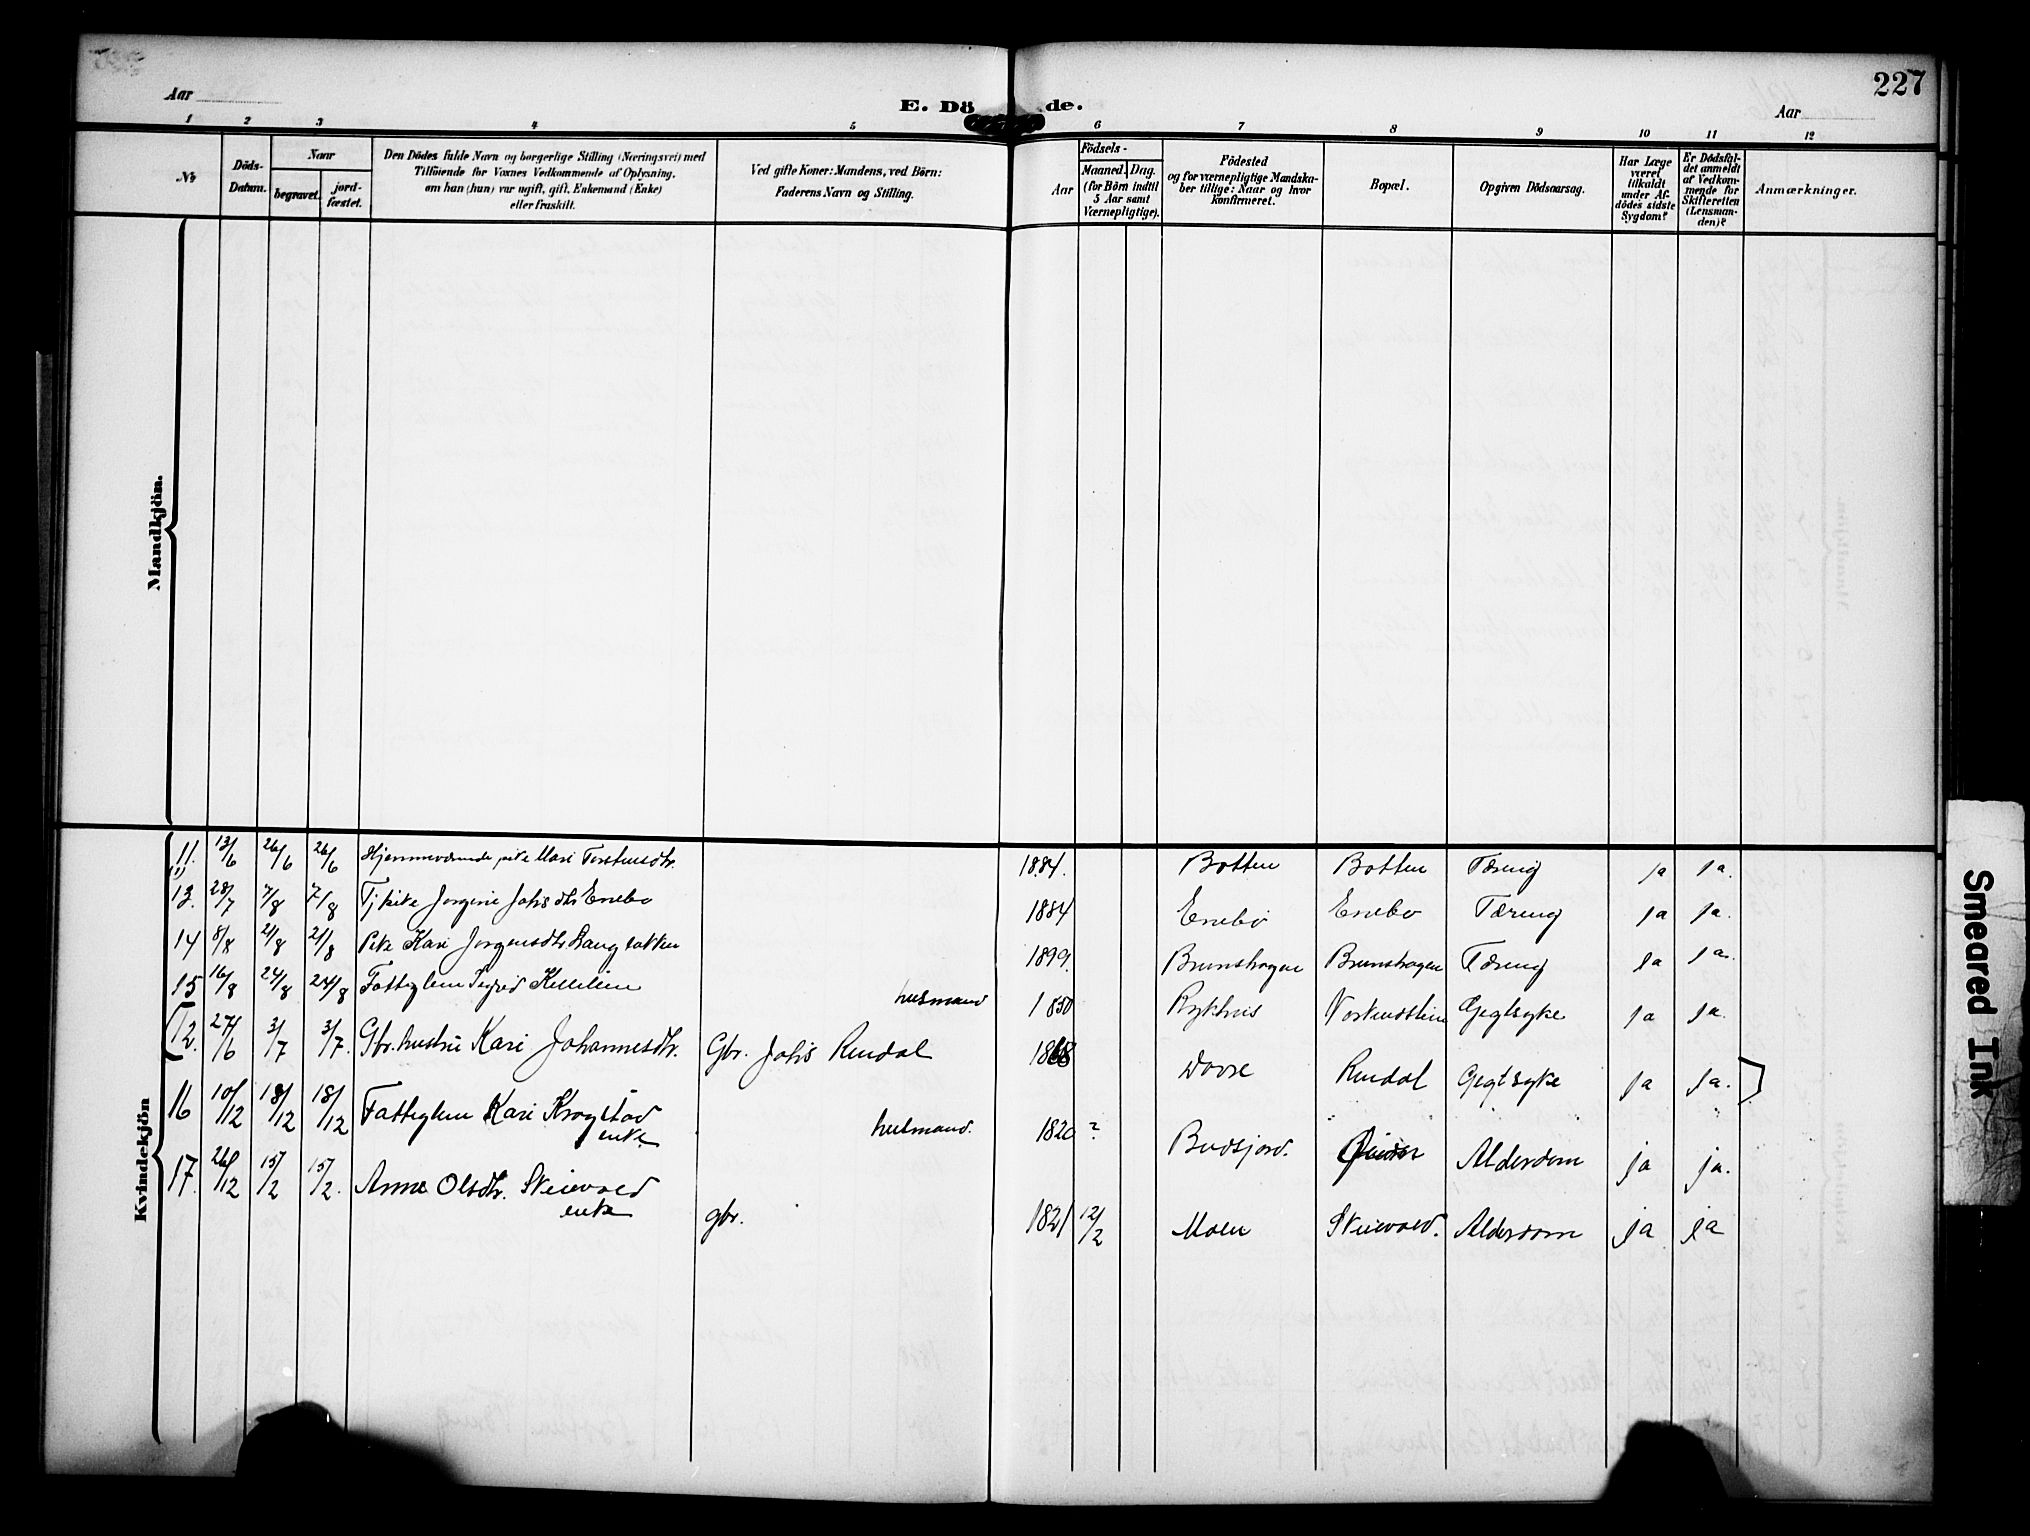 227
Aar
E. Dö de.
Aar
1 2 3 4 5 6 7 8 9 10 11 12
No.
Döds-
Datum.
Naar
begravet.
jord-
fæstet.
Den Dödes fulde Navn og borgerlige Stilling (Næringsvei) med
Tilföiende for Voxnes Vedkommende af Oplysning,
om han (hun) var ugift, gift, Enkemand (Enke)
eller fraskilt.
Ved gifte Koner: Mandens, ved Börn:
Faderens Navn og Stilling.
Födsels-
Aar
Maaned. Dag.
(for Börn indtil
5 Aar samt
Værnepligtige).
Födested
og for værnepligtige Mandska-
ber tillige: Naar og hvor
konfirmeret.
Bopæl.
Opgiven Dödsaarsag.
Har Læge
været
tilkaldt
under Af-
dödes sidste
Sygdom?
Er Dödsfal-
det anmeldt
af Vedkom-
mende for
Skifteretten
(Lensman-
den)?
Anmærkninger.
Mandkjön.
Kvindekjön
11. 13/6 26/6 26/6 Hjemmeværende pike Mari Torstensdtr. 1884. Botten Botten Tæring ja ja.
13. 28/7 7/8 7/8 Tj. pike Jorgine Johs dtr Enebo 1884 Enebo Enebo Tæring ja ja.
14 8/8 21/8 21/8 Pike Kari Jorgensdtr 1899. Brunshagen Brunshagen Tæring ja ja.
15 16/8 24/8 24/8 Fattiglem Sigrid husmand 1850 Gegtsyke ja ja.
(12. 27/6 3/7 3/7. Gbr. hustru Kari Johannesdtr. Gbr. Johs Rendal 1868 Dovre Rendal Gegtsyke ja ja.
16 10/12 18/12 18/12 Fattiglem Kari Krogstad
enke husmand. 1820 ? Budsjord. Alderdom ja ja.
17. 26/12 15/2 15/2. Anne Olsdtr. Skievold
enke gbr. 1821 12/2 Moen Skievold. Alderdom ja ja
Smeared Ink